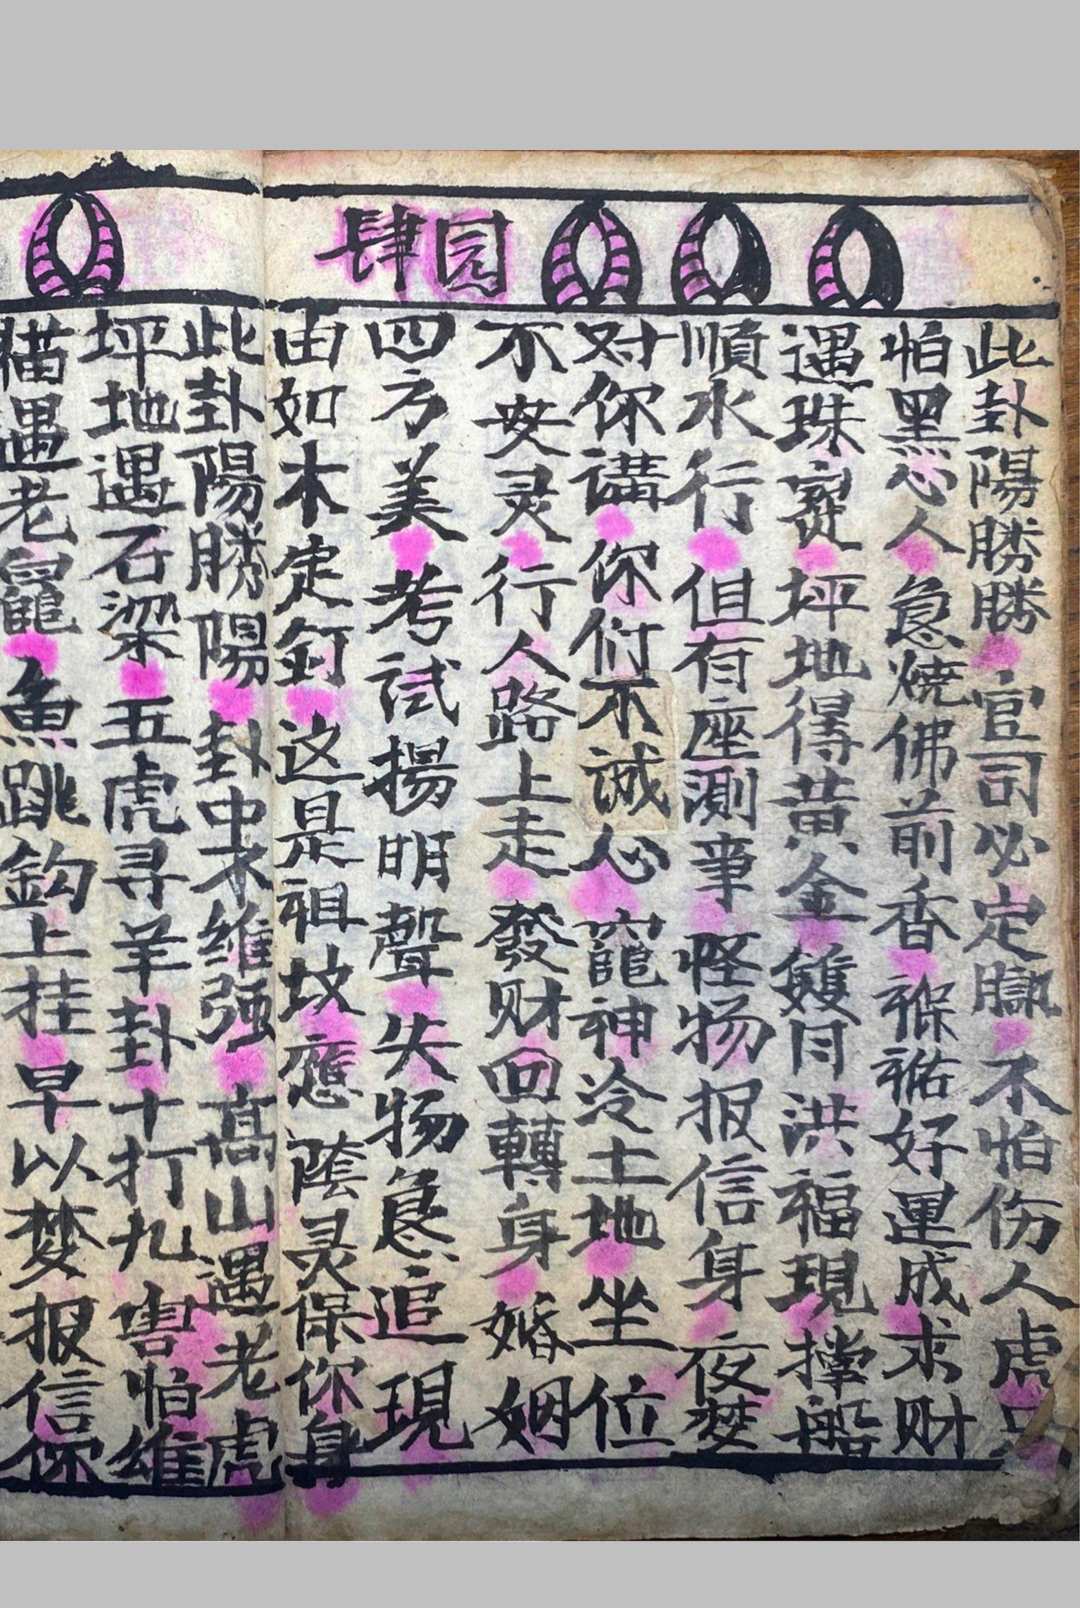 肆园
此卦陽勝勝官司必定贏不怕伤人虎
怕黑心人急燒佛前香保祐好運成求财
遇珠寳坪地得黄金雙月洪福現撑船
順水行但有座測事怪物报信身夜梦
对你講你们不誠心竈神冷土地坐位
不安灵行人路上走發财回轉身婚姻
四方美考試揚明聲失物急追現
由如木定釘这是祖坟應陰灵保你身
此卦陽勝陽卦中木维强高山遇老虎
坪地遇石梁五虎寻羊卦十打九害怕维
猫遇老竈魚跳鈎上挂早以梦报信你